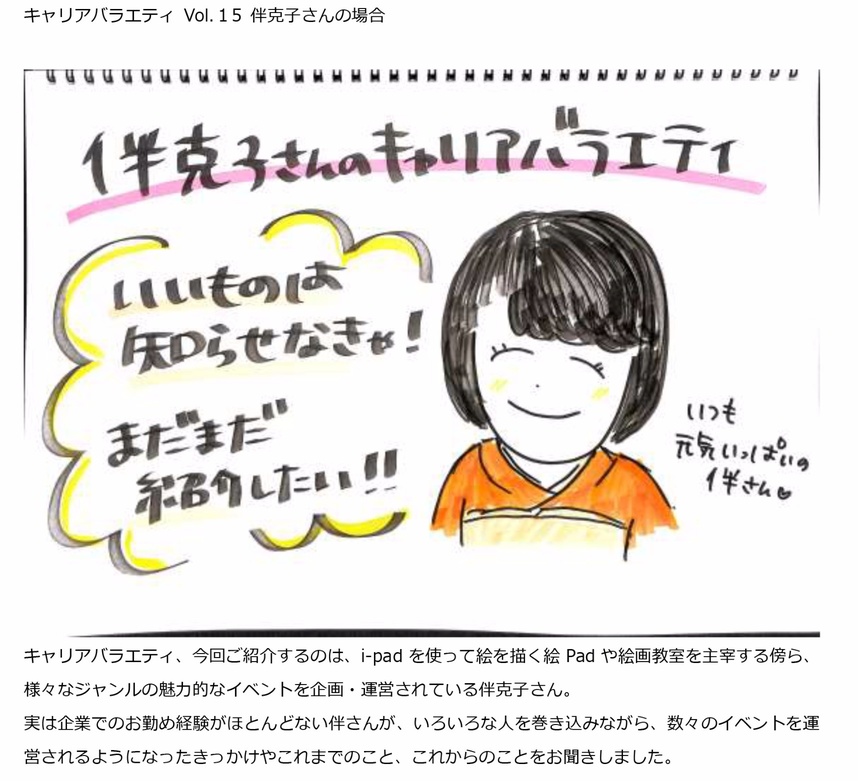 キャリアバラエティ Vol.１5 伴克子さんの場合
伴克子さんのキャリアバラエティ
いいものは
知らせなきゃ！
まだまだ
紹介したい！！
いつも
元気いっぱいの
伴さん♡
キャリアバラエティ、今回ご紹介するのは、i-pad を使って絵を描く絵 Pad や絵画教室を主宰する傍ら、
様々なジャンルの魅力的なイベントを企画・運営されている伴克子さん。
実は企業でのお勤め経験がほとんどない伴さんが、いろいろな人を巻き込みながら、数々のイベントを運
営されるようになったきっかけやこれまでのこと、これからのことをお聞きしました。